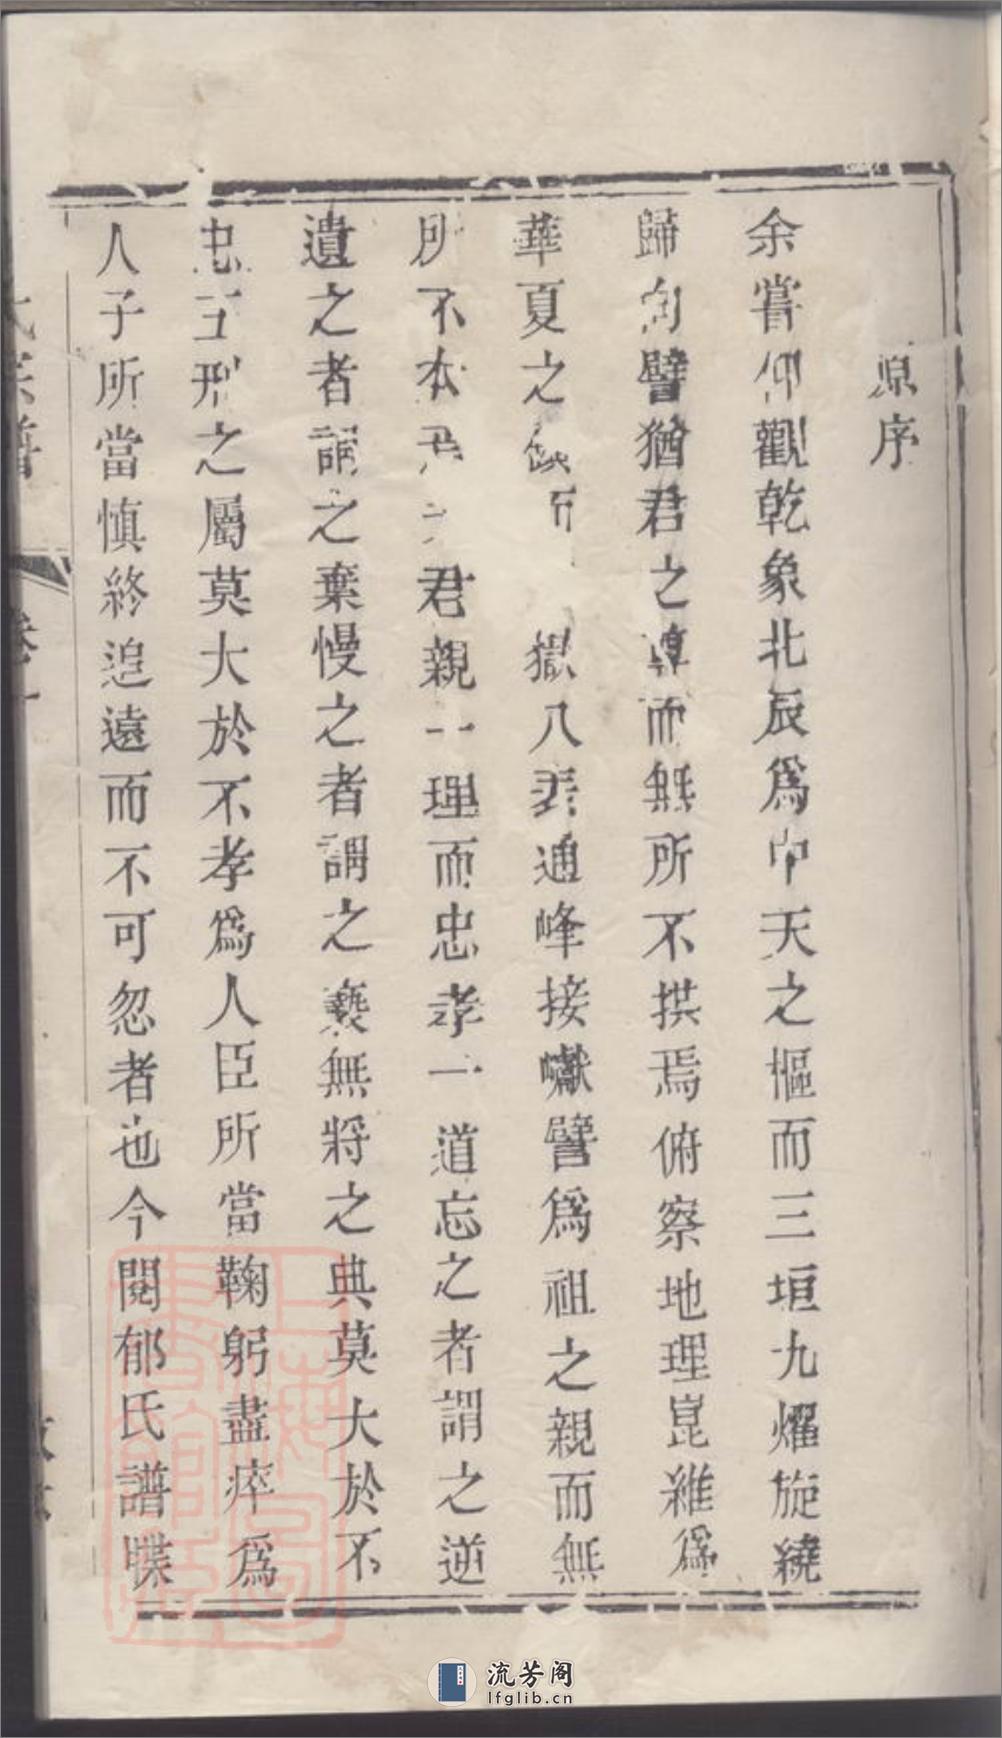 原序
余嘗仰觀乾象北辰爲中天之樞而三垣九燿旋繞
歸向譬猶君之尊而無所不拱焉俯察地理崑維爲
華夏之 嶽八表通峰接巘譬爲祖之親而無
所不本焉夫君親一理而忠孝一道忘之者謂之逆
遺之者謂之棄慢之者謂之褻無將之典莫大於不
忠五刑之屬莫大於不孝爲人臣所當鞠躬盡瘁爲
人子所當慎終追遠而不可忽者也今閱郁氏譜牒
氏宗譜
卷一
流芳阁
lfglib.cn